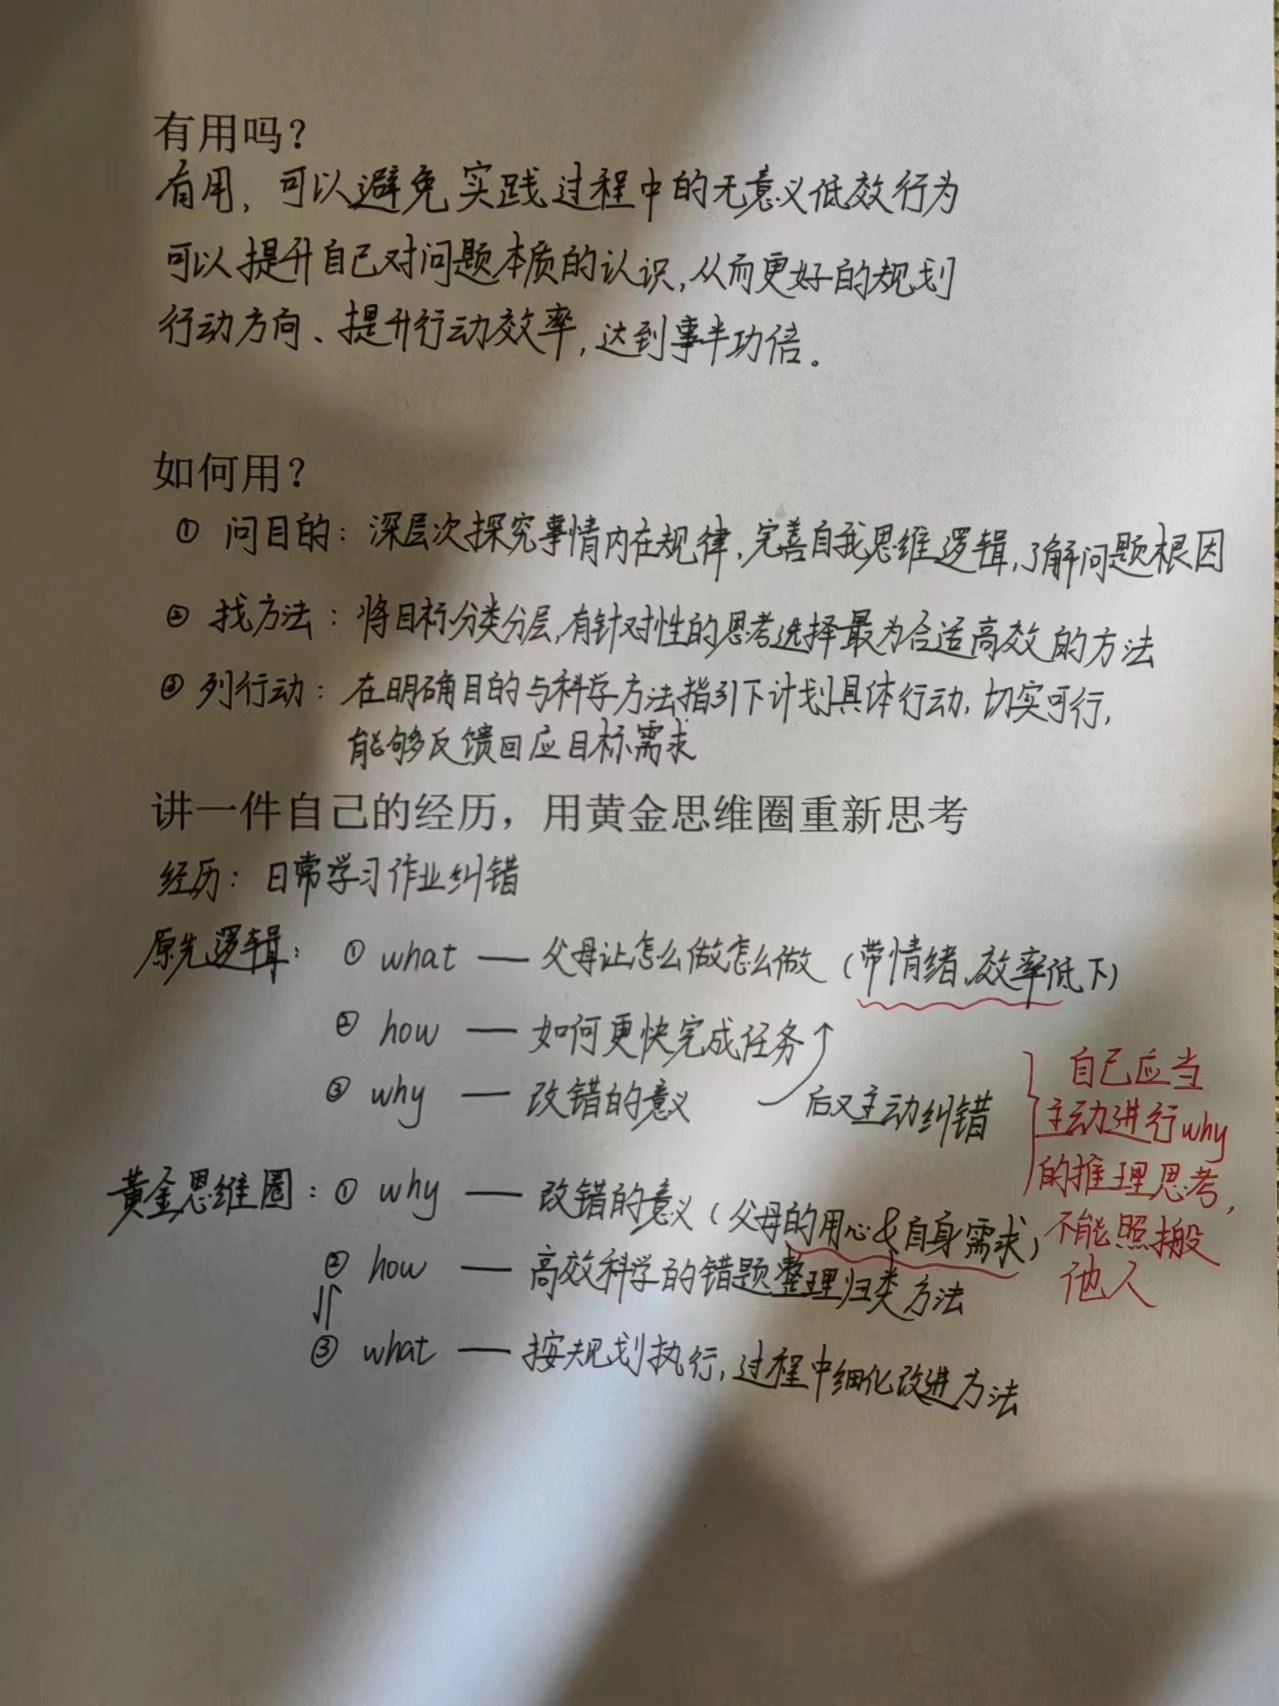 有用吗？
有用，可以避免实践过程中的无意义低效行为
可以提升自己对问题本质的认识，从而更好的规划
行动方向、提升行动效率，达到事半功倍。
如何用？
① 问目的：深层次探究事情内在规律，完善自我思维逻辑，了解问题根因
② 找方法：将目标分类分层，有针对性的思考选择最为合适高效的方法
③ 列行动：在明确目的与科学方法指引下计划具体行动，切实可行，
能够反馈回应目标需求
讲一件自己的经历，用黄金思维圈重新思考
经历：日常学习作业纠错
原先逻辑：① what — 父母让怎么做怎么做（带情绪、效率低下）
② how — 如何更快完成任务
③ why — 改错的意义 后又主动纠错
自己应当
主动进行why
的推理思考，
不能照搬
他人
黄金思维圈：① why — 改错的意义（父母的用心&自身需求）
② how — 高效科学的错题整理归类方法
③ what — 按规划执行，过程中细化改进方法